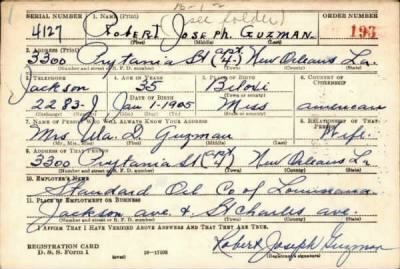 16-1-2
(see folder)
SERIAL NUMBER 1. NAME (Print) ORDER NUMBER
4127 ROBERT JOSEPH GUZMAN 193
(First) (Middle) (Last)
2. ADDRESS (Print)
3300 Prytania St (apt 4) New Orleans La.
(Number and street or R. F. D. number) (Town) (County) (State)
3. TELEPHONE 4. AGE IN YEARS 5. PLACE OF BIRTH 6. COUNTRY OF CITIZENSHIP
Jackson 35 Biloxi
DATE OF BIRTH (Town or county)
2283-J Jan 1-1905 Miss american
7. NAME OF PERSON WHO WILL ALWAYS KNOW YOUR ADDRESS 8. RELATIONSHIP OF THAT PERSON
Mrs Guzman Wife
(Mr., Mrs., Miss) (First) (Middle) (Last)
9. ADDRESS OF THAT PERSON
3300 Prytania St (apt 4) New Orleans La
(Number and street or R. F. D. number) (Town) (County) (State)
10. EMPLOYER'S NAME
Standard Oil Co of Louisiana
11. PLACE OF EMPLOYMENT OR BUSINESS
Jackson ave & St Charles ave
(Number and street or R. F. D. number) (Town) (County) (State)
I AFFIRM THAT I HAVE VERIFIED ABOVE ANSWERS AND THAT THEY ARE TRUE.
Robert Joseph Guzman
REGISTRATION CARD
D. S. S. Form 1
(Registrant's signature)